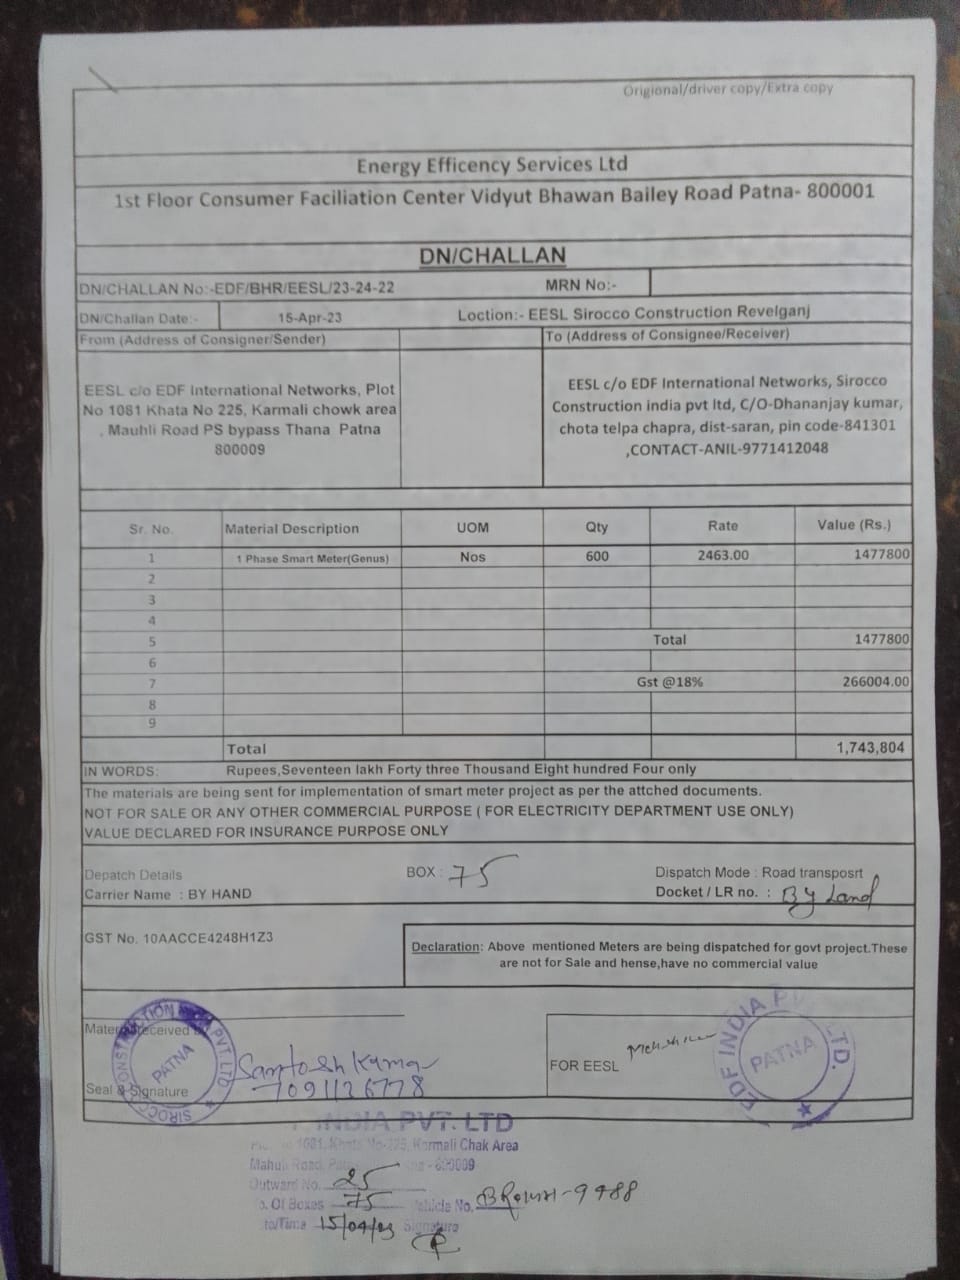 Origional/driver copy/Extra copy
Energy Efficency Services Ltd
1st Floor Consumer Faciliation Center Vidyut Bhawan Bailey Road Patna- 800001
DN/CHALLAN
DN/CHALLAN No:-EDF/BHR/EESL/23-24-22 MRN No:-
DN/Challan Date:- 15-Apr-23 Loction:- EESL Sirocco Construction Revelganj
From (Address of Consigner/Sender) To (Address of Consignee/Receiver)
EESL c/o EDF International Networks, Plot
No 1081 Khata No 225, Karmali chowk area
, Mauhli Road PS bypass Thana Patna
800009
EESL c/o EDF International Networks, Sirocco
Construction india pvt ltd, C/O-Dhananjay kumar,
chota telpa chapra, dist-saran, pin code-841301
,CONTACT-ANIL-9771412048
Sr. No. Material Description UOM Qty Rate Value (Rs.)
1 1 Phase Smart Meter(Genus) Nos 600 2463.00 1477800
2
3
4
5 Total 1477800
6
7 Gst @18% 266004.00
8
9
Total 1,743,804
IN WORDS: Rupees,Seventeen lakh Forty three Thousand Eight hundred Four only
The materials are being sent for implementation of smart meter project as per the attched documents.
NOT FOR SALE OR ANY OTHER COMMERCIAL PURPOSE ( FOR ELECTRICITY DEPARTMENT USE ONLY)
VALUE DECLARED FOR INSURANCE PURPOSE ONLY
Depatch Details BOX : 75 Dispatch Mode : Road transposrt
Carrier Name : BY HAND Docket / LR no. : By Land
GST No. 10AACCE4248H1Z3
Declaration: Above mentioned Meters are being dispatched for govt project.These
are not for Sale and hense,have no commercial value
Material received
Seal & Signature
SIROCCO CONSTRUCTION INDIA PVT. LTD
PATNA
Santosh Kumar
7091126778
FOR EESL
EDF INDIA PVT. LTD.
PATNA
INDIA PVT. LTD
1081, Khata No-225, Karmali Chak Area
Mahuli Road, - 800009
Outward No. 25
Of Boxes 75 Vehicle No. 9988
to/Time 15/04/23 Signature